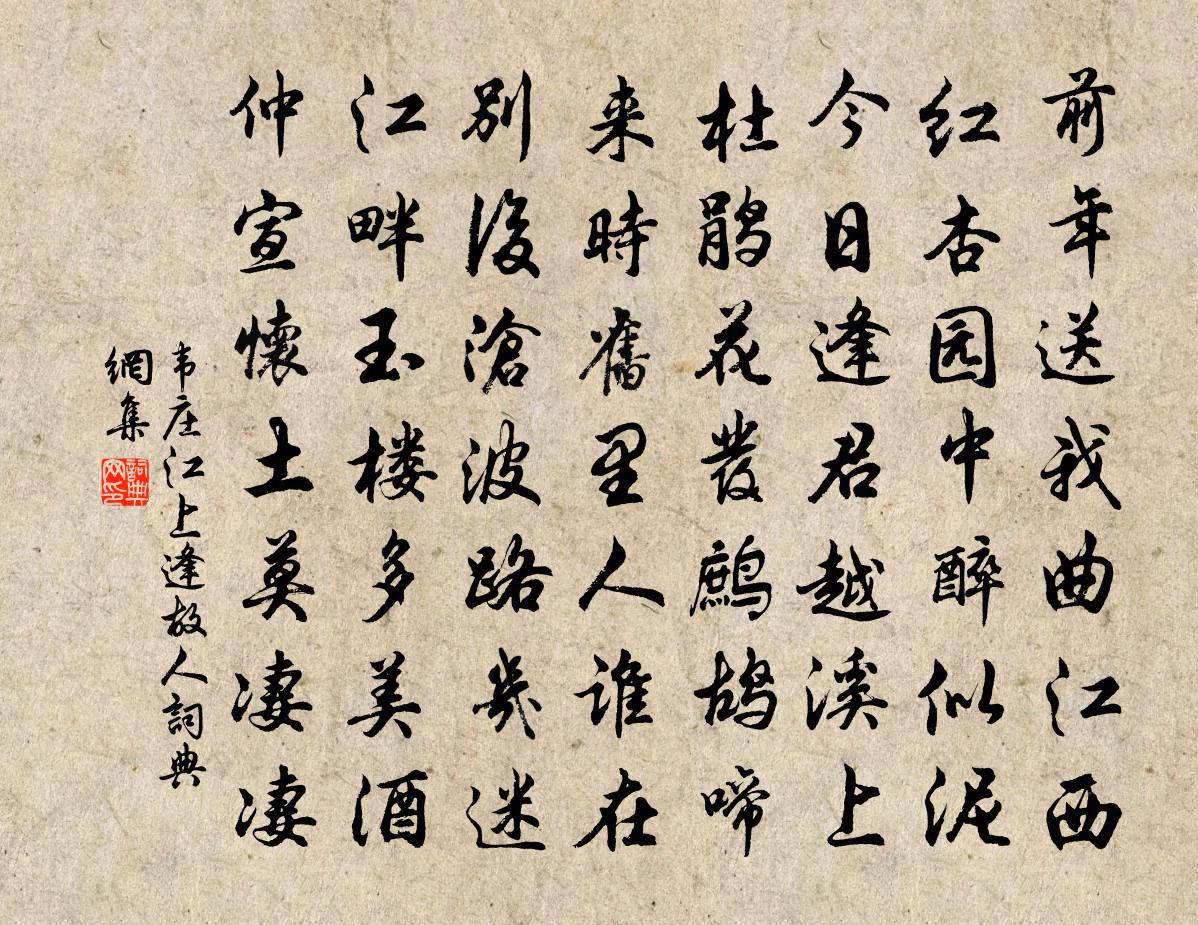 前年送我曲江西
红杏园中醉似泥
今日逢君越溪上
杜鹃花發鷓鸪啼
来時舊里人谁在
别後滄波路幾迷
江畔玉楼多美酒
仲宣懷土莫凄凄
韦庄江上逢故人詞典
網集
詞典网印